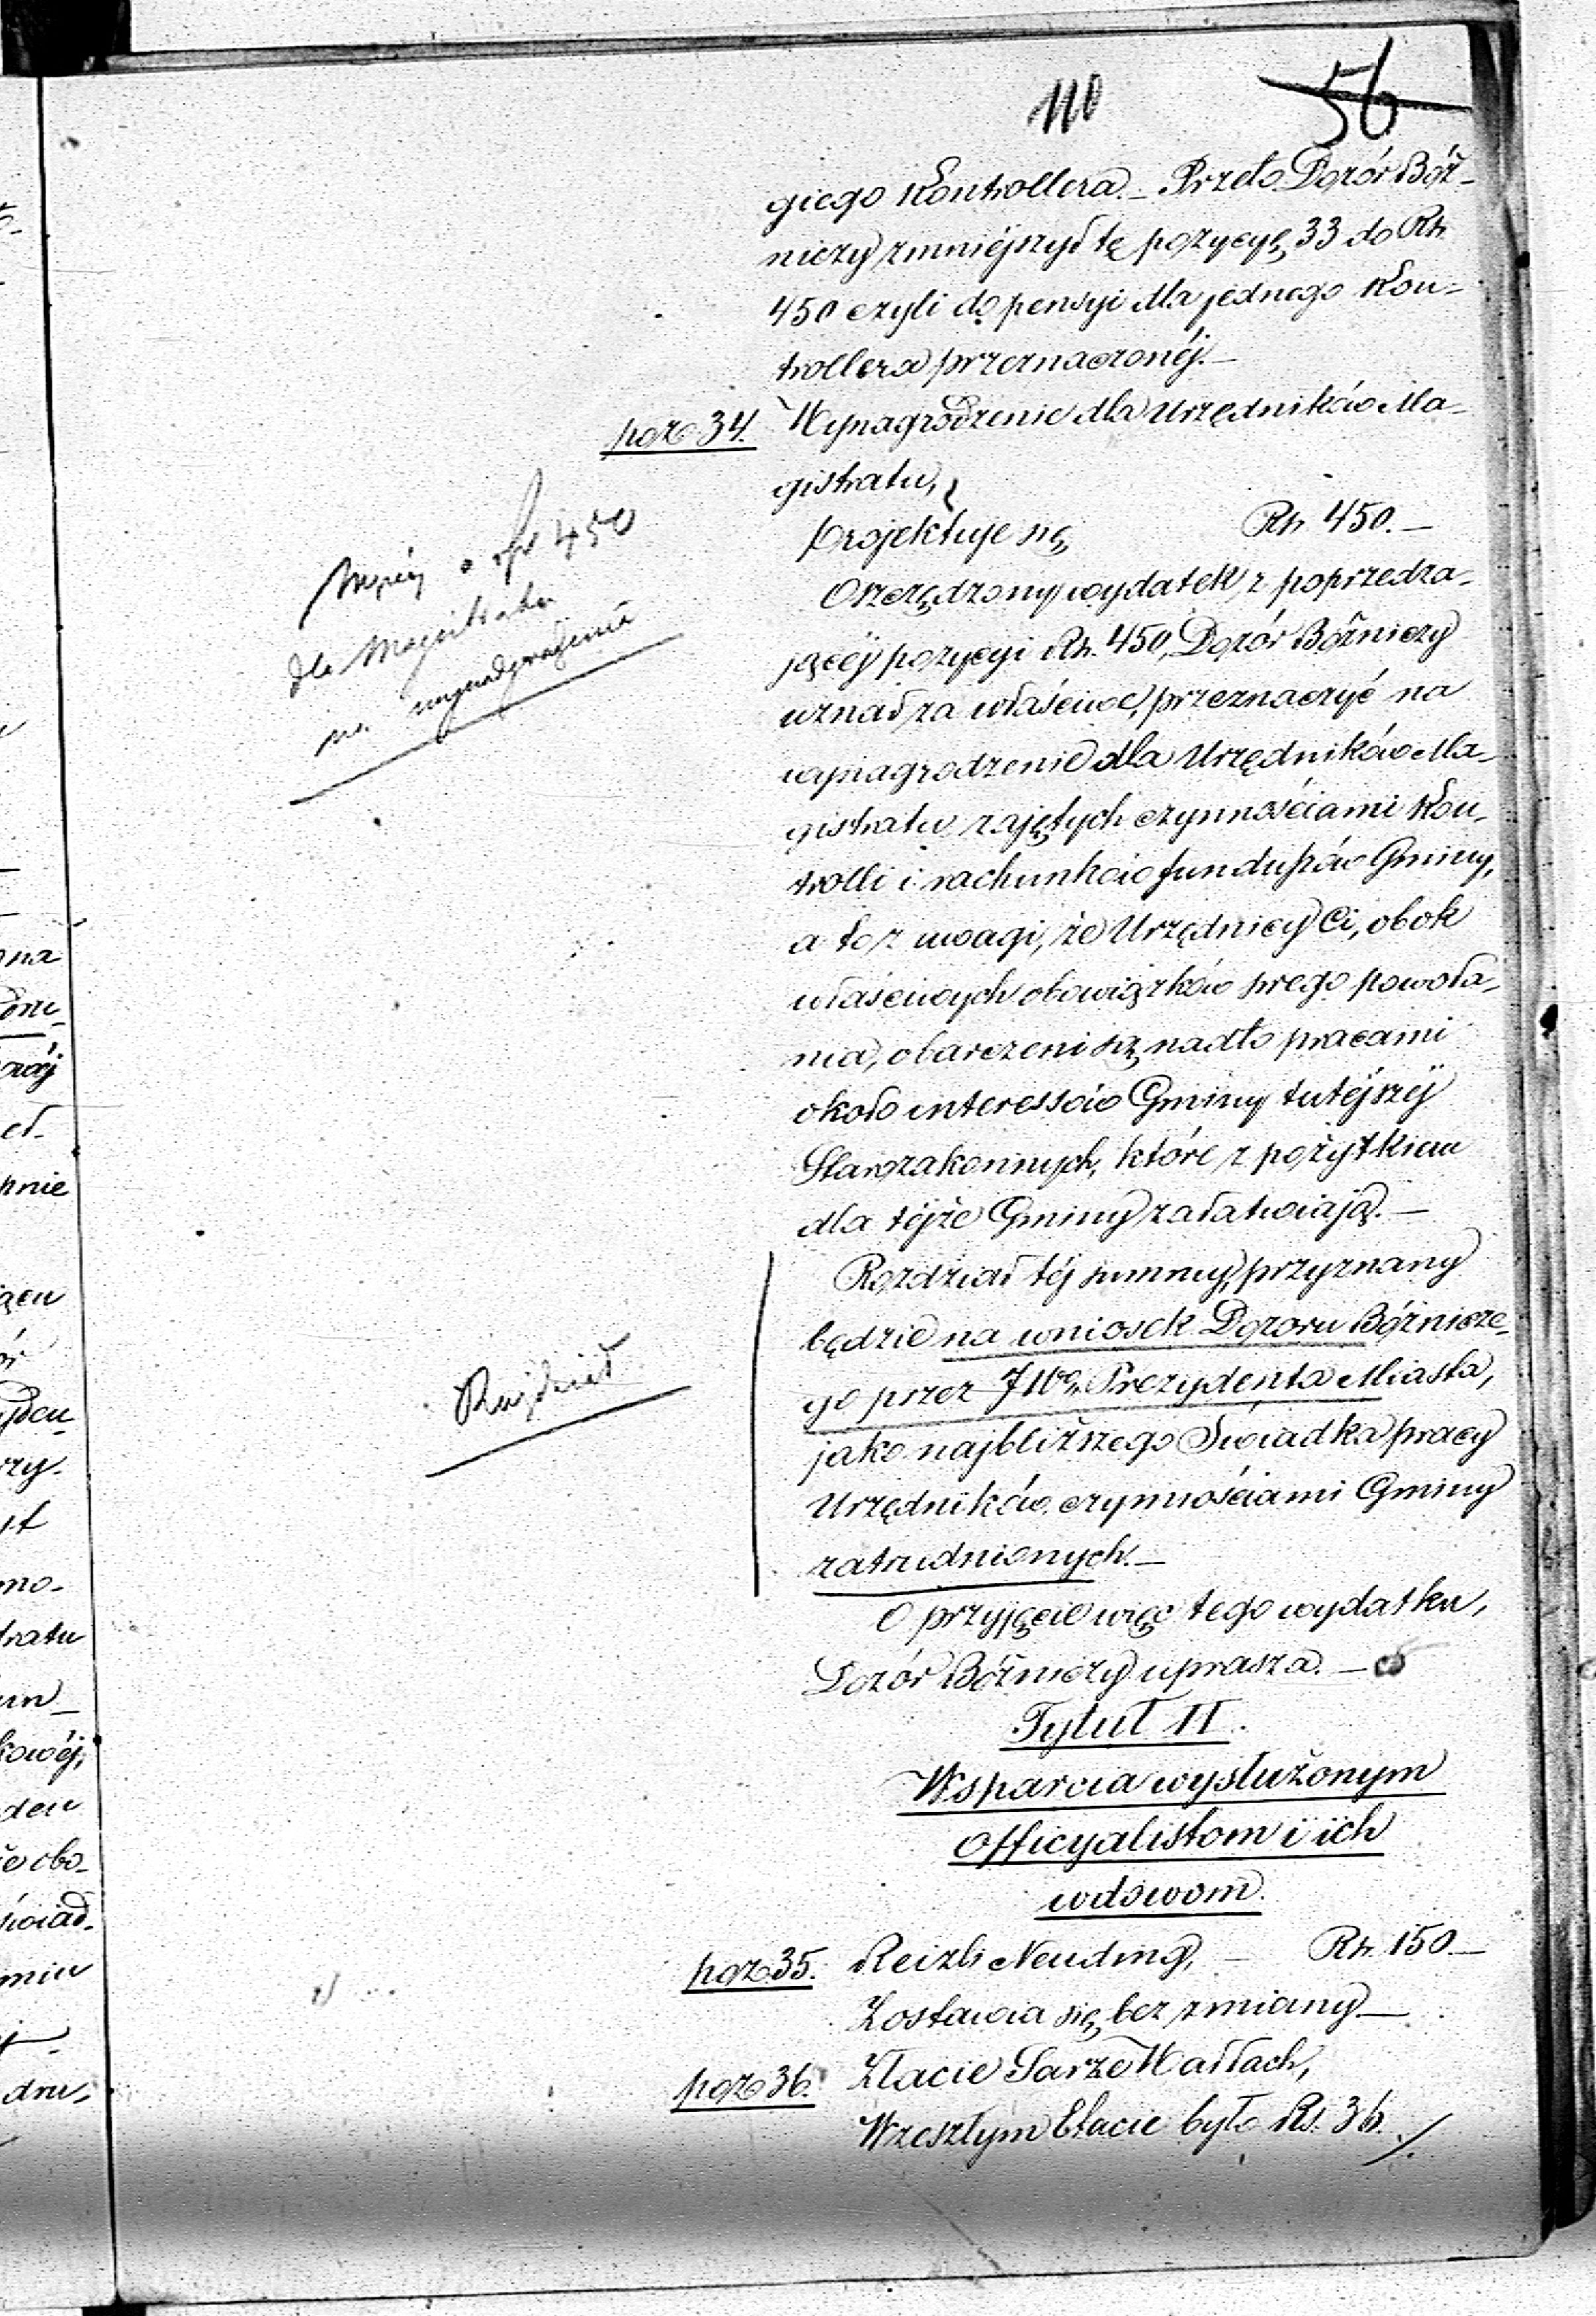 110
56
giego Kontrollera. – Przeto Dozór Bóż-
niczy zmniéjszył tę pozycyę 33 do Rs.
450 czyli do pensyi dla jednego Kon-
trollera przeznaczonéj. –
poz. 34. Wynagrodzenie dla Urzędników Ma-
gistratu,
projektuje się Rs. 450. –
Oszczędzony wydatek z poprzedza-
jącéj pozycyi Rs. 450, Dozór Bóżniczy
uznał za właściwe, przeznaczyć na
wynagrodzenie dla Urzędników Ma-
gistratu zajętych czynnościami Kon-
trolli i rachunków funduszów Gminy,
a to z uwagi, że Urzędnicy Ci, obok
właściwych obowiązków swego powoła-
nia, obarczeni są nadto pracami
około interessów Gminy tutéjszéj
Starozakonnych, które z pożytkiem
dla téjże Gminy załatwiają. –
Rozdział téj summy, przyznany
będzie na wniosek Dozoru Bóżnicze-
go przez JWo. Prezydenta Miasta,
jako najbliższego Świadka pracy
Urzędników czynnościami Gminy
zatrudnionych. –
O przyjęcie więc tego wydatku,
Dozór Bóżniczy uprasza. –
Tytuł II.
Wsparcia wysłużonym
Officyalistom i ich
wdowom.
poz. 35. Reizli Neuding, – Rs. 150 –
Zostawia się bez zmiany –
poz. 36. Złacie Sarze Wallach,
W zeszłym Etacie było Rs. 36. ./.
450
dla Magistratu
na wynadgrodzenia
Rozdział